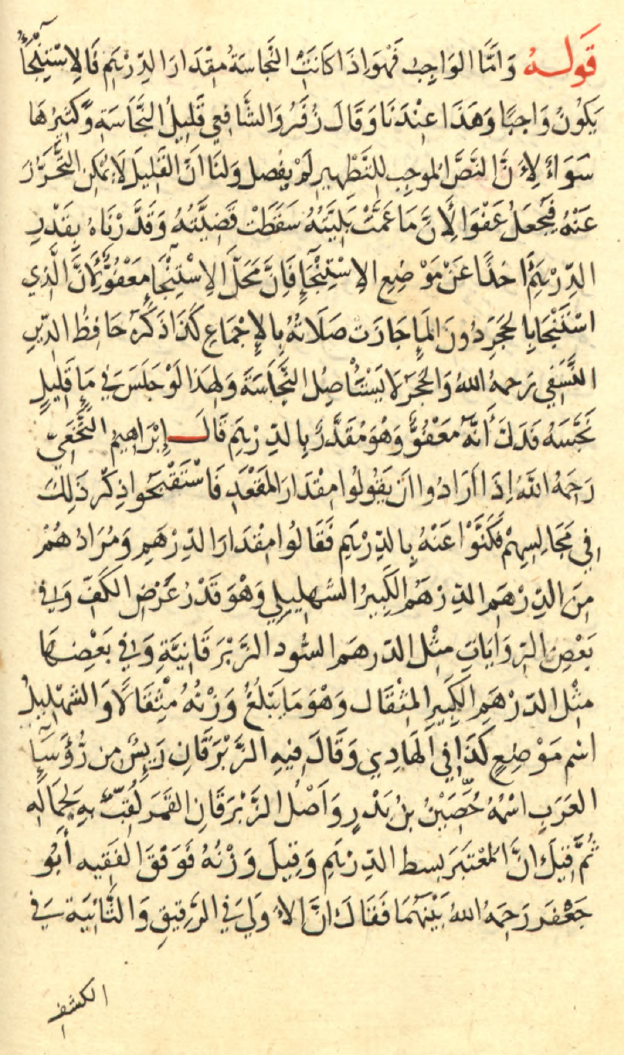 قوله واما الواجب فهو اذا كانت النجاسة مقدار الدرهم فالاستنجاء
يكون واجبا وهذا عندنا وقال زفر والشافعي قليل النجاسة وكثيرها
سواء لان النص الموجب للتطهير لم يفصل ولنا ان القليل لا يمكن التحرز
عنه فيجعل عفوا لان ما عمت بليته سقطت قضيته وقدرناه بقدر
الدرهم اخذا عن موضع الاستنجاء فان محل الاستنجا معفو لان الذي
استنجا بالحجر دون الماء جازت صلاته بالاجماع كذا ذكره حافظ الدين
النسفي رحمه الله والحجر لا يستأصل النجاسة ولهذا لو جلس في ماء قليل
نجسه فدل انه معفو وهو مقدر بالدرهم قال ابراهيم النخعي
رحمه الله اذا ارادوا ان يقولوا مقدار المقعد فاستقبحوا ذكر ذلك
في مجالسهم فكنوا عنه بالدرهم فقالوا مقدار الدرهم ومرادهم
من الدرهم الدرهم الكبير الشهليلي وهو قدر عرض الكف وفي
بعض الروايات مثل الدرهم السود الزبرقانية وفي بعضها
مثل الدرهم الكبير المثقال وهو ما يبلغ وزنه مثقالا والشهليل
اسم موضع كذا في الهادي وقال فيه الزبرقان ريس من رؤسا
العرب اسمه حصين بن بدر واصل الزبرقان القمر لقب به لجماله
ثم قيل ان المعتبر بسط الدرهم وقيل وزنه فوفق الفقيه أبو
جعفر رحمه الله بينهما فقال ان الاولى في الرقيق والثانية في
الكشف